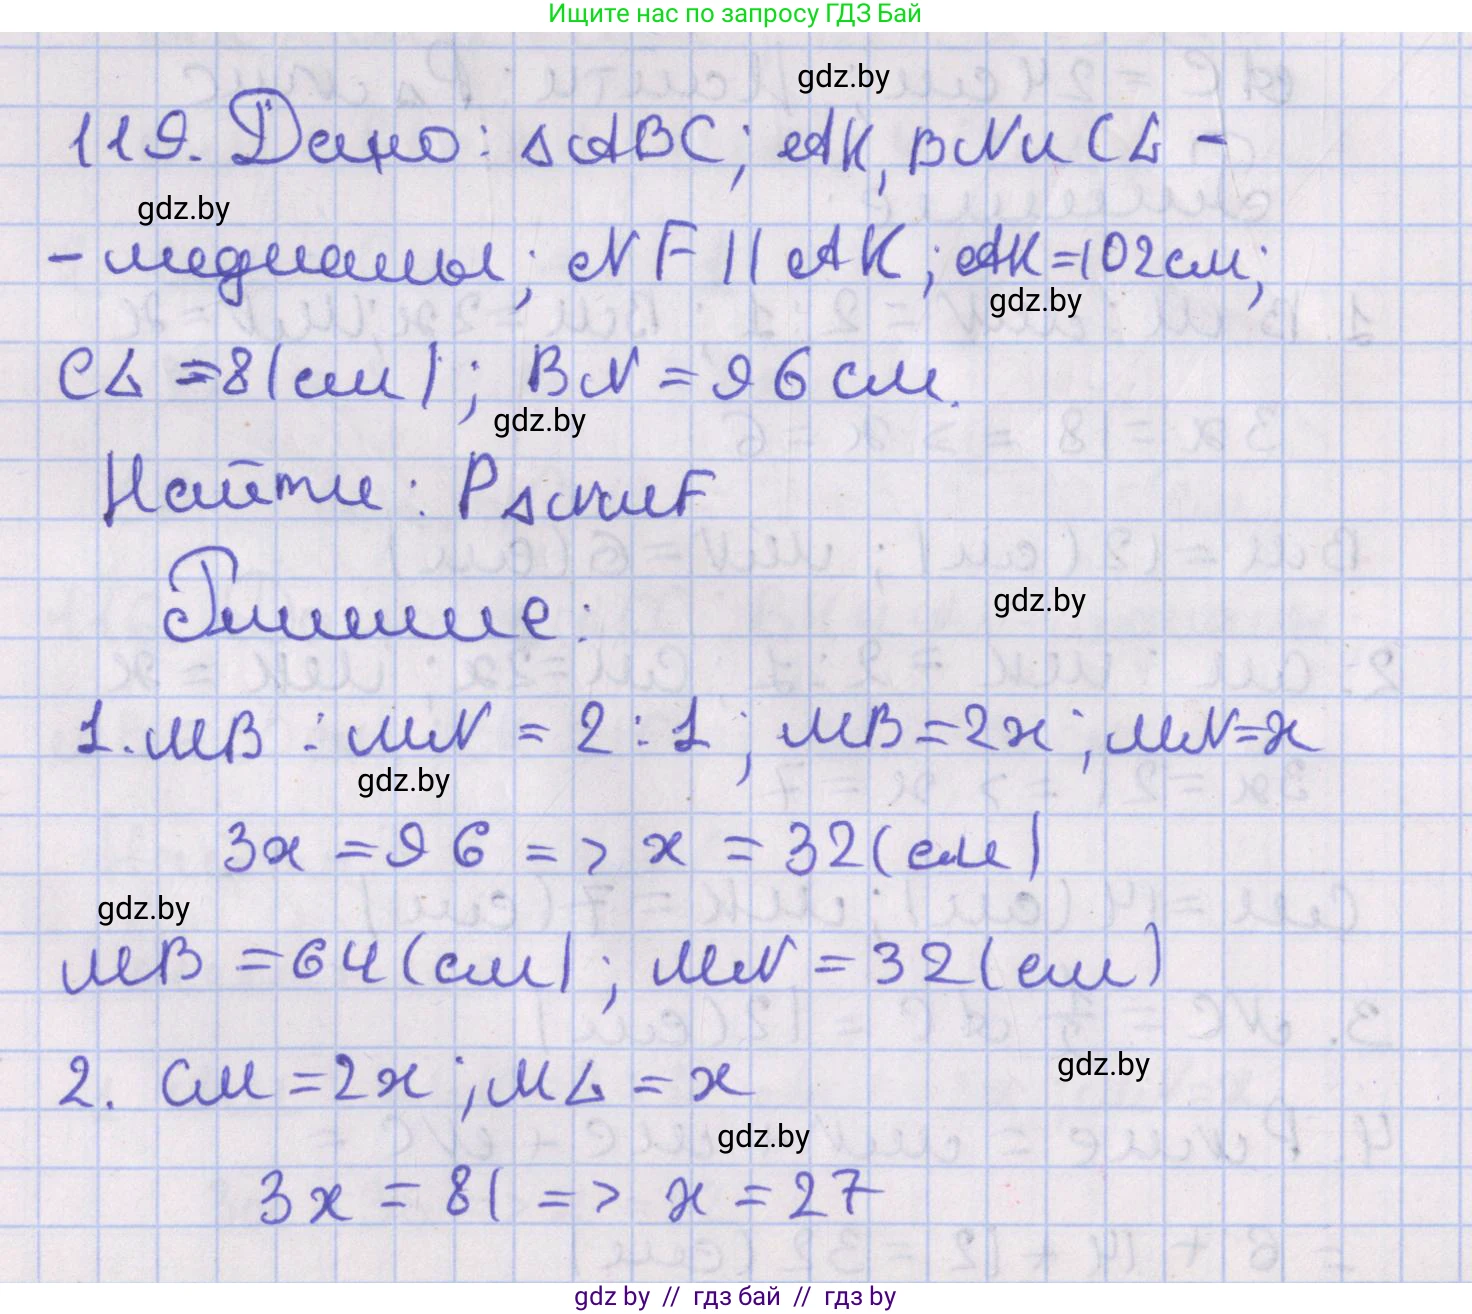 Ищите нас по запросу ГДЗ Бай
gdz.by
119. Дано: △ABC; AK, BN и CL -
gdz.by
- медианы; NF || AK; AK=102см;
gdz.by
CL = 81(см); BN = 96 см.
gdz.by
Найти: P△NMF
Решение:
gdz.by
1. MB : MN = 2 : 1; MB = 2x; MN = x
gdz.by
3x = 96 => x = 32(см)
gdz.by
MB = 64(см); MN = 32(см)
2. CM = 2x; ML = x
gdz.by
gdz.by
3x = 81 => x = 27
gdz by // гдз бай // гдз by